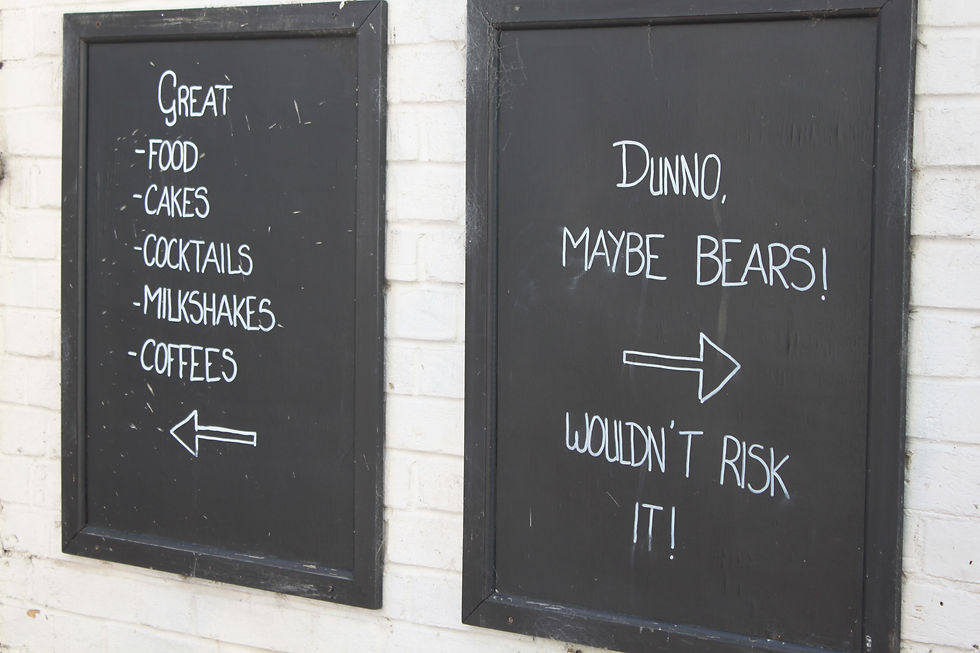 GREAT
-FOOD
-CAKES
-COCKTAILS
-MILKSHAKES
-COFFEES
DUNNO,
MAYBE BEARS!
WOULDN'T RISK
IT!